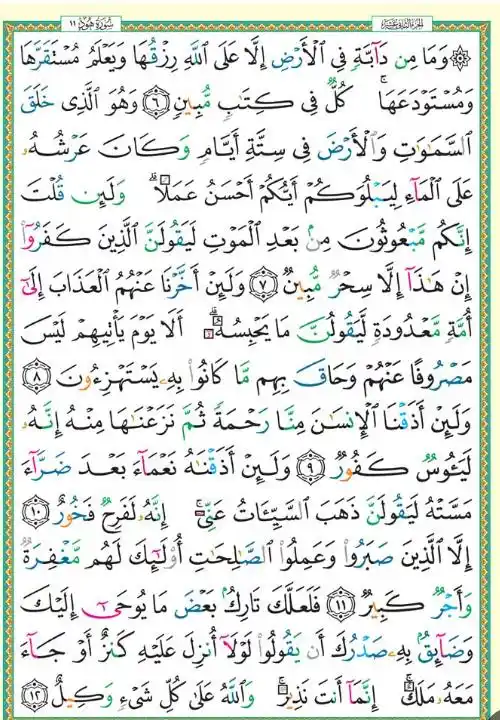 سورة هود ١١
الجزء الثاني عشر
۞ وَمَا مِن دَآبَّةٍ فِي الْأَرْضِ إِلَّا عَلَى اللَّهِ رِزْقُهَا وَيَعْلَمُ مُسْتَقَرَّهَا
وَمُسْتَوْدَعَهَا ۚ كُلٌّ فِي كِتَٰبٍ مُّبِينٍ ٦ وَهُوَ الَّذِي خَلَقَ
السَّمَٰوَٰتِ وَالْأَرْضَ فِي سِتَّةِ أَيَّامٍ وَكَانَ عَرْشُهُۥ
عَلَى الْمَآءِ لِيَبْلُوَكُمْ أَيُّكُمْ أَحْسَنُ عَمَلًا ۗ وَلَئِن قُلْتَ
إِنَّكُم مَّبْعُوثُونَ مِنۢ بَعْدِ الْمَوْتِ لَيَقُولَنَّ الَّذِينَ كَفَرُوٓا۟
إِنْ هَٰذَآ إِلَّا سِحْرٌ مُّبِينٌ ٧ وَلَئِنْ أَخَّرْنَا عَنْهُمُ الْعَذَابَ إِلَىٰٓ
أُمَّةٍ مَّعْدُودَةٍ لَّيَقُولُنَّ مَا يَحْبِسُهُۥٓ ۗ أَلَا يَوْمَ يَأْتِيهِمْ لَيْسَ
مَصْرُوفًا عَنْهُمْ وَحَاقَ بِهِم مَّا كَانُوا۟ بِهِۦ يَسْتَهْزِءُونَ ٨
وَلَئِنْ أَذَقْنَا الْإِنسَٰنَ مِنَّا رَحْمَةً ثُمَّ نَزَعْنَٰهَا مِنْهُ إِنَّهُۥ
لَيَـُٔوسٌ كَفُورٌ ٩ وَلَئِنْ أَذَقْنَٰهُ نَعْمَآءَ بَعْدَ ضَرَّآءَ
مَسَّتْهُ لَيَقُولَنَّ ذَهَبَ السَّيِّـَٔاتُ عَنِّيٓ ۚ إِنَّهُۥ لَفَرِحٌ فَخُورٌ ١٠
إِلَّا الَّذِينَ صَبَرُوا۟ وَعَمِلُوا۟ الصَّٰلِحَٰتِ أُو۟لَٰٓئِكَ لَهُم مَّغْفِرَةٌ
وَأَجْرٌ كَبِيرٌ ١١ فَلَعَلَّكَ تَارِكٌۢ بَعْضَ مَا يُوحَىٰٓ إِلَيْكَ
وَضَآئِقٌۢ بِهِۦ صَدْرُكَ أَن يَقُولُوا۟ لَوْلَآ أُنزِلَ عَلَيْهِ كَنزٌ أَوْ جَآءَ
مَعَهُۥ مَلَكٌ ۚ إِنَّمَآ أَنتَ نَذِيرٌ ۚ وَاللَّهُ عَلَىٰ كُلِّ شَيْءٍ وَكِيلٌ ١٢